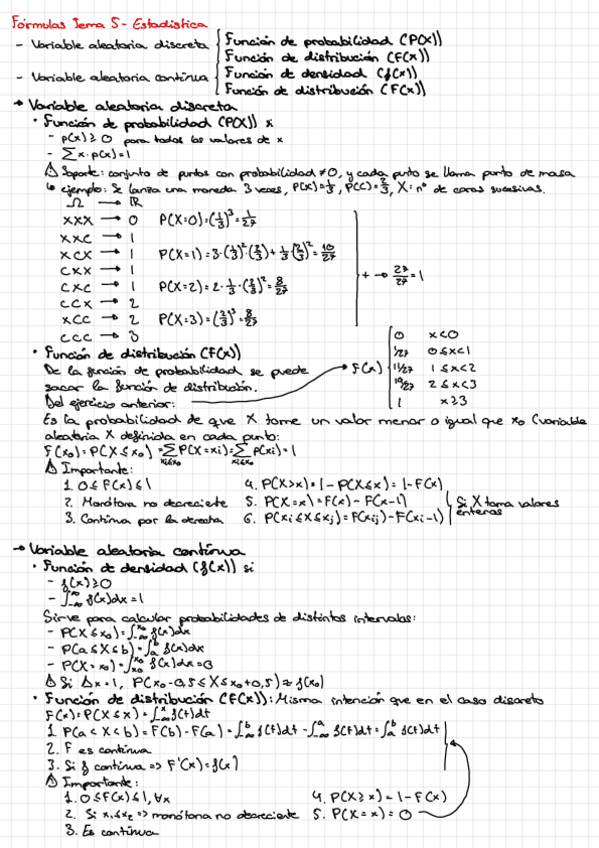 Fórmulas Tema 5 - Estadística
- Variable aleatoria discreta { Función de probabilidad (P(X))
Función de distribución (F(x))
- Variable aleatoria continua { Función de densidad (f(x))
Función de distribución (F(x))
→ Variable aleatoria discreta
• Función de probabilidad (P(X)) si
- p(x) ≥ 0 para todos los valores de x
- Σx·p(x)=1
⚠ Soporte: conjunto de puntos con probabilidad ≠ 0, y cada punto se llama punto de masa
↳ ejemplo: Se lanza una moneda 3 veces, P(X)=1/3, P(C)=2/3, X: nº de caras sucesivas.
Ω → ℝ
XXX → 0 P(X=0)=(1/3)³=1/27
XXC → 1
XCX → 1 P(X=1)=3·(1/3)²·(2/3)+1/3·(2/3)²=10/27
CXX → 1
CXC → 1 P(X=2)=2·1/3·(2/3)²=8/27
CCX → 2
XCC → 2 P(X=3)=(2/3)³=8/27
CCC → 3
+ → 27/27=1
• Función de distribución (F(x))
De la función de probabilidad se puede
sacar la función de distribución.
Del ejercicio anterior:
→ F(x) { 0 x<0
1/27 0≤x<1
11/27 1≤x<2
19/27 2≤x<3
1 x≥3
Es la probabilidad de que X tome un valor menor o igual que x₀ (variable
aleatoria X definida en cada punto:
F(x₀)=P(X≤x₀)=ΣP(X=xi)=Σp(xi)=1
⚠ Importante:
1. 0≤F(x)≤1 4. P(X>x)=1-P(X≤x)=1-F(x)
2. Monótona no decreciente 5. P(X=x)=F(x)-F(x-1)
3. Continua por la derecha 6. P(xi≤X≤xj)=F(xj)-F(xi-1)
Si X toma valores
enteros
→ Variable aleatoria continua
• Función de densidad (f(x)) si
- f(x)≥0
- ∫₋∞^∞ f(x)dx=1
Sirve para calcular probabilidades de distintos intervalos:
- P(X≤x₀)=∫₋∞^x₀ f(x)dx
- P(a≤X≤b)=∫ₐ^b f(x)dx
- P(X=x₀)=∫x₀^x₀ f(x)dx=0
⚠ Si Δx=1, P(x₀-0,5≤X≤x₀+0,5)≈f(x₀)
• Función de distribución (F(x)): Misma intención que en el caso discreto
F(x)=P(X≤x)=∫₋∞^x f(t)dt
1. P(a<X<b)=F(b)-F(a)=∫₋∞^b f(t)dt-∫₋∞^a f(t)dt=∫ₐ^b f(t)dt
2. F es continua
3. Si f continua => F'(x)=f(x)
⚠ Importante:
1. 0≤F(x)≤1, ∀x 4. P(X≥x)=1-F(x)
2. Si x₁≤x₂ => monótona no decreciente 5. P(X=x)=0
3. Es continua